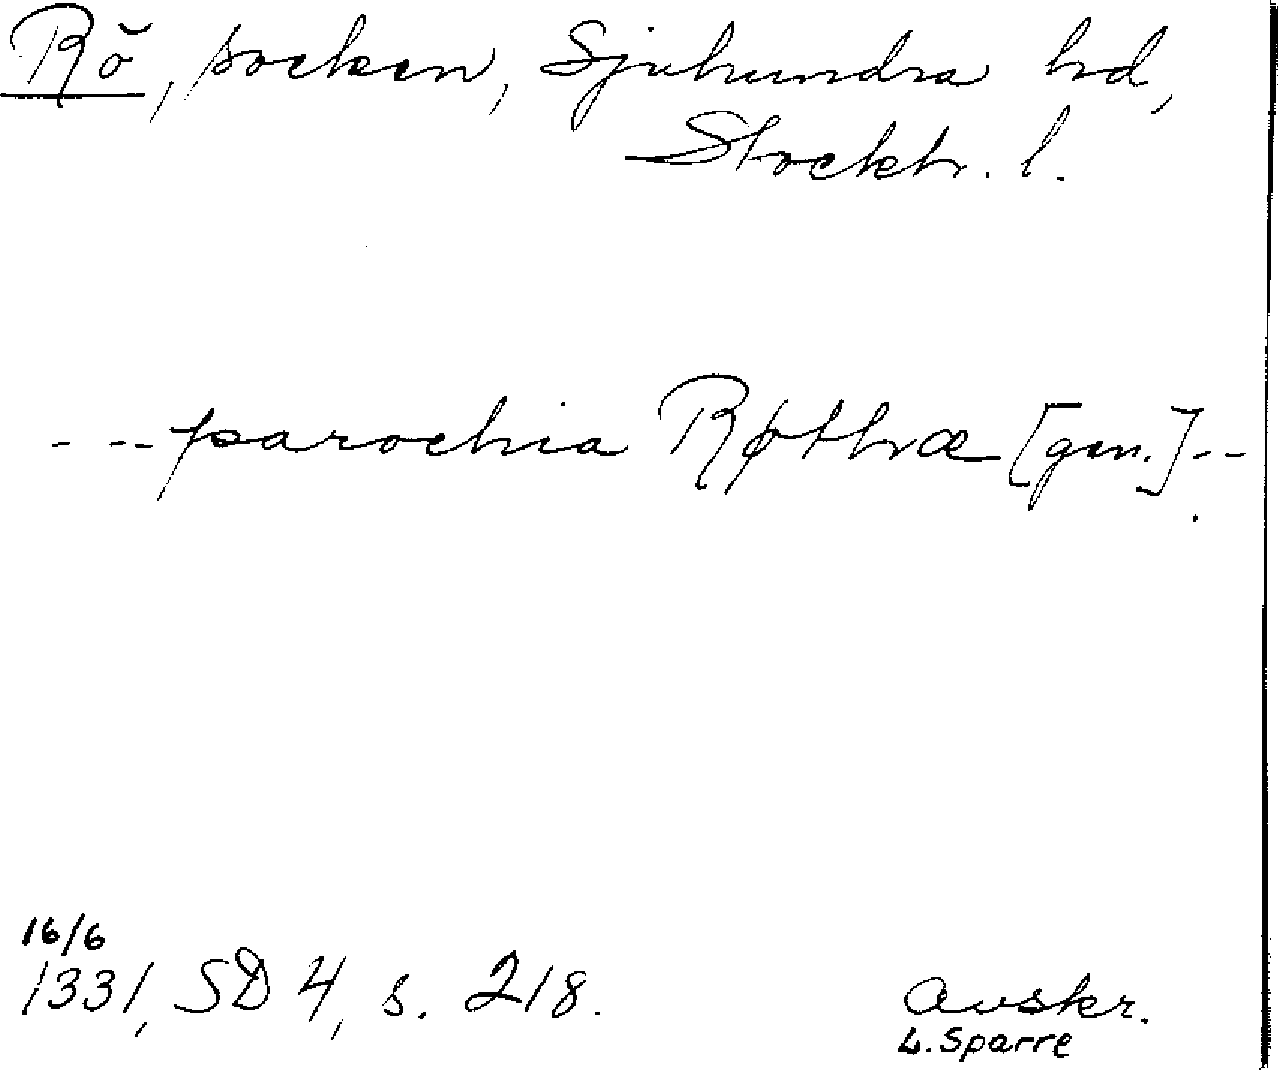 Rö, socken, Sjuhundra hd,
Stockh. l.
- - - parochia Røthræ [gen.] - - .
16/6
1331, SD 4, s. 218.
Avskr.
L. Sparre